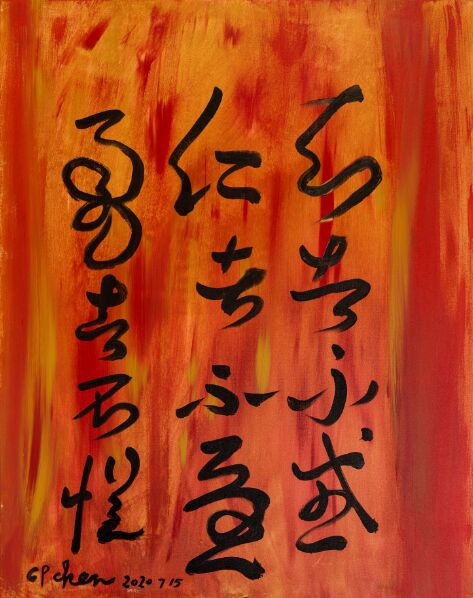 知者不惑
仁者不憂
勇者不懼
chen 2020 7 15